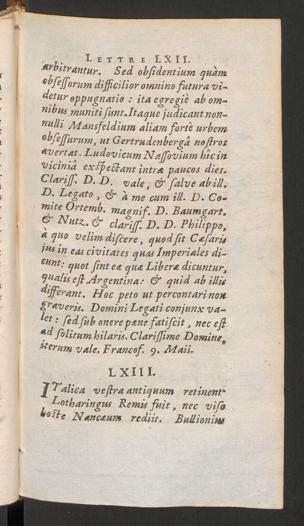 LETTRE LXII.
arbitrantur. Sed obsidentium quàm
obsessorum difficilior omnino futura vi-
detur oppugnatio : ita egregiè ab om-
nibus muniti sunt. Itaque judicant non-
nulli Mansfeldium aliam fortè urbem
obsessurum, ut Gertrudenbergâ nostros
avertat. Ludovicum Nassovium hic in
viciniâ exspectant intra paucos dies.
Clariss. D. D. vale, & salve ab ill.
D. Legato, & à me cum ill. D. Co-
mite Ortemb. magnif. D. Baumgart.
& Nutz. & clariss. D. D. Philippo,
à quo velim discere, quod sit Cæsaris
jus in eas civitates quas Imperiales di-
cunt: quot sint eæ quæ Liberæ dicuntur,
qualis est Argentina: & quid ab illis
differant. Hoc peto ut percontari non
graveris. Domini Legati conjunx va-
let : sed sub onere pæne fatiscit, nec est
ad solitum hilaris. Clarissime Domine,
iterum vale. Francof. 9. Maii.
LXIII.
ITalica vestra antiquum retinent.
Lotharingus Remis fuit, nec viso
hoste Nanceum rediit. Bullionius